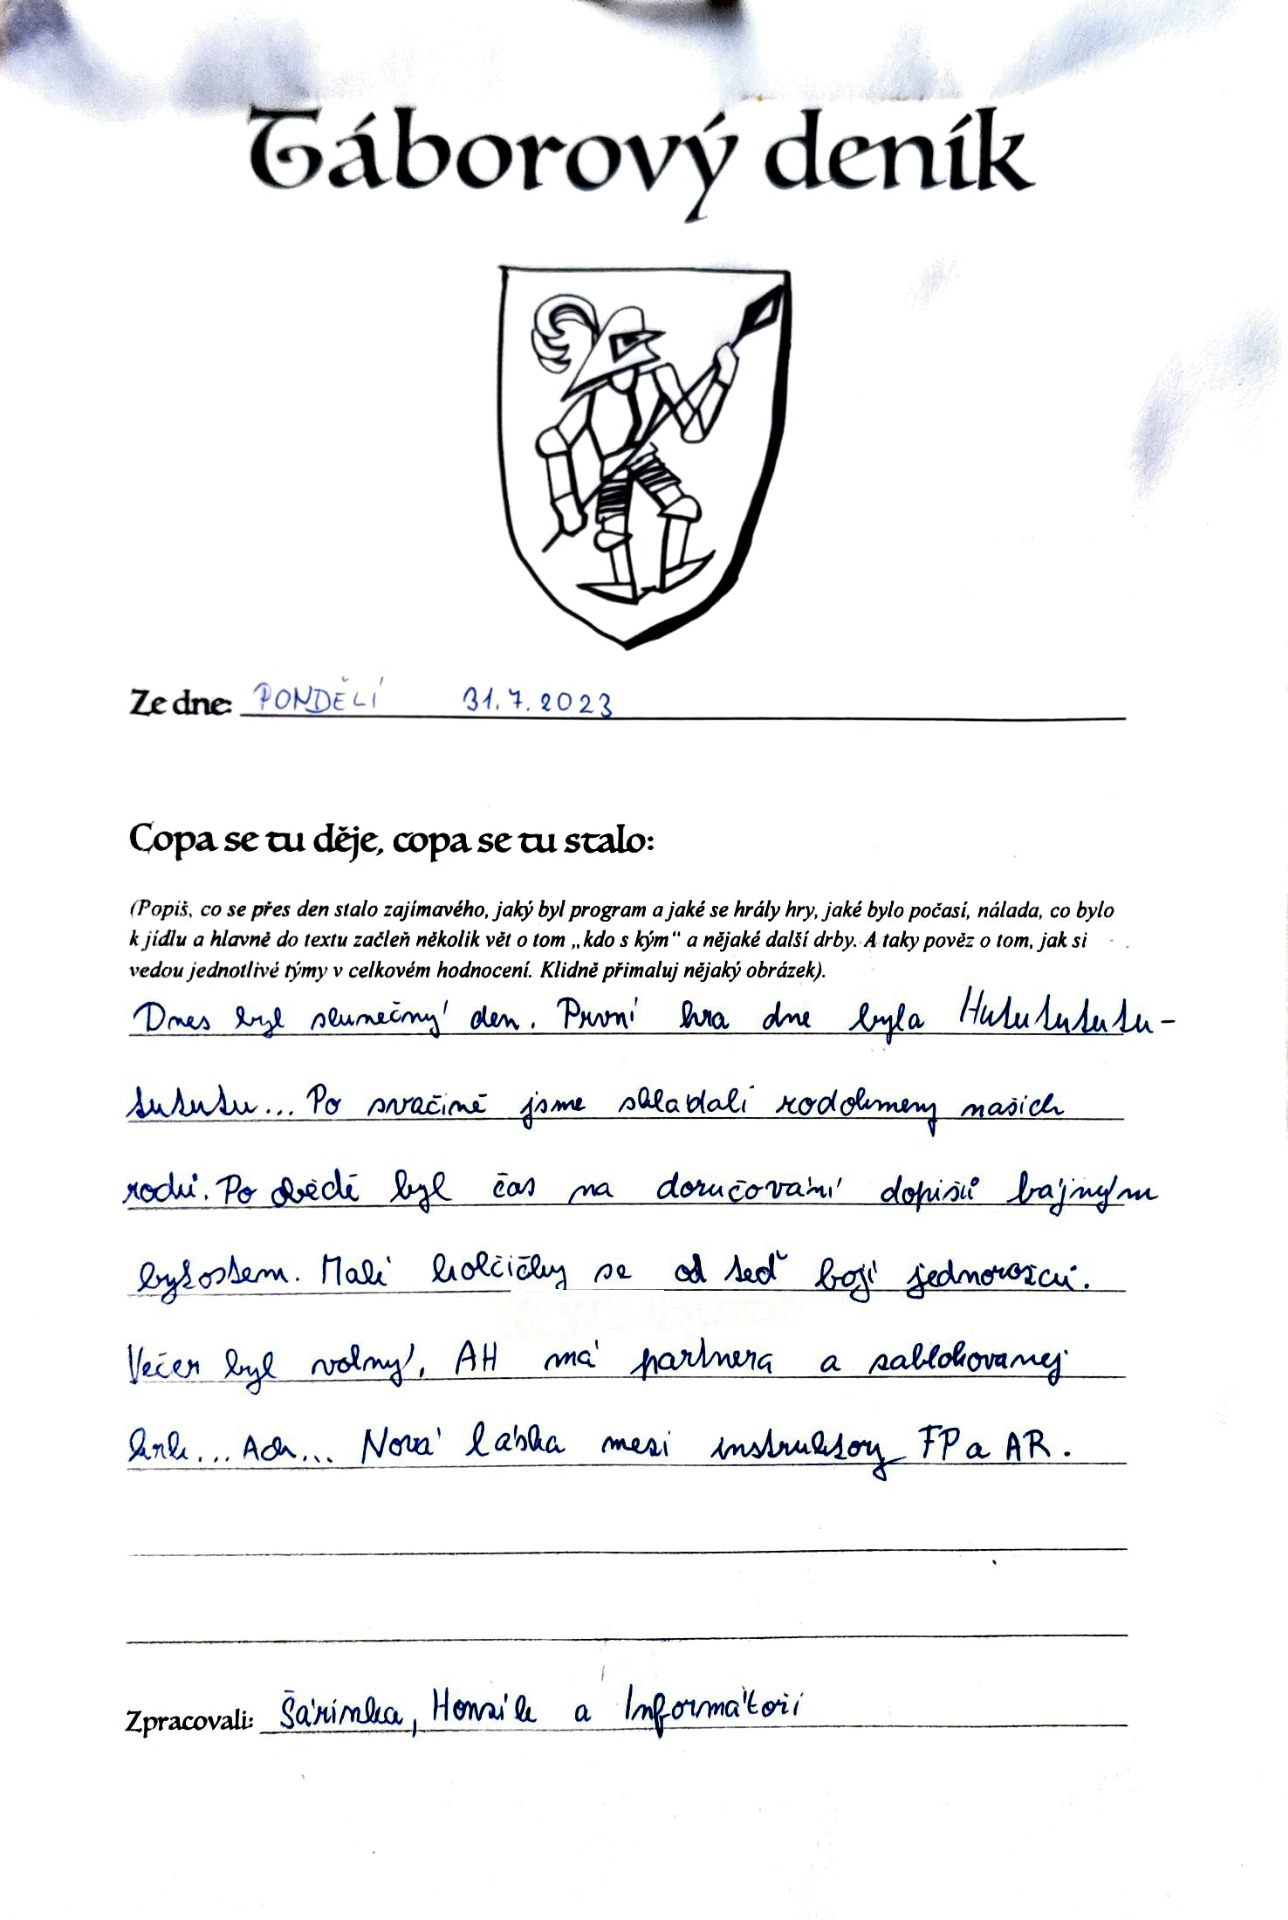 Táborový deník
Ze dne: PONDĚLÍ 31.7.2023
Copa se tu děje, copa se tu stalo:
(Popiš, co se přes den stalo zajímavého, jaký byl program a jaké se hrály hry, jaké bylo počasí, nálada, co bylo
k jídlu a hlavně do textu začleň několik vět o tom „kdo s kým“ a nějaké další drby. A taky pověz o tom, jak si
vedou jednotlivé týmy v celkovém hodnocení. Klidně přimaluj nějaký obrázek).
Dnes byl slunečný den. První hra dne byla Hutututu-
tututu... Po svačině jsme skládali rodokmeny našich
rodů. Po obědě byl čas na doručování dopisů bájným
bytostem. Malé holčičky se od teď bojí jednorožců.
Večer byl volný. AH má partnera a zablokovanej
krk... Ach... Nová láska mezi instruktory FP a AR.
Zpracovali: Šárinka, Honzík a Informátoři